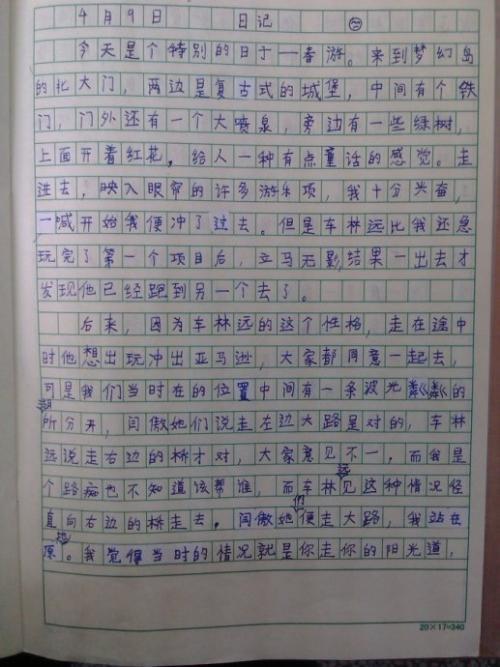 4月9日 日记
今天是个特别的日子——春游。来到梦幻岛
的北大门，两边是复古式的城堡，中间有个铁
门，门外还有一个大喷泉，旁边有一些绿树，
上面开着红花，给人一种有点童话的感觉。走
进去，映入眼帘的许多游乐项，我十分兴奋，
一喊开始我便冲了过去。但是车林远比我还急
玩完了第一个项目后，立马无影，结果一出去才
发现他已经跑到另一个去了。
后来，因为车林远的这个性格，走在途中
时他想出玩冲出亚马逊，大家都同意一起去，
可是我们当时在的位置中间有一条波光粼粼的
湖
所分开，闫傲她们说走左边大路是对的，车林
远说走右边的桥才对，大家意见不一，而我是
个路痴也不知道该帮谁，而车林远见这种情况径
直向右边的桥走去。闫傲她们便走大路，我站在
原地。我觉得当时的情况就是你走你的阳光道，
20×17=340